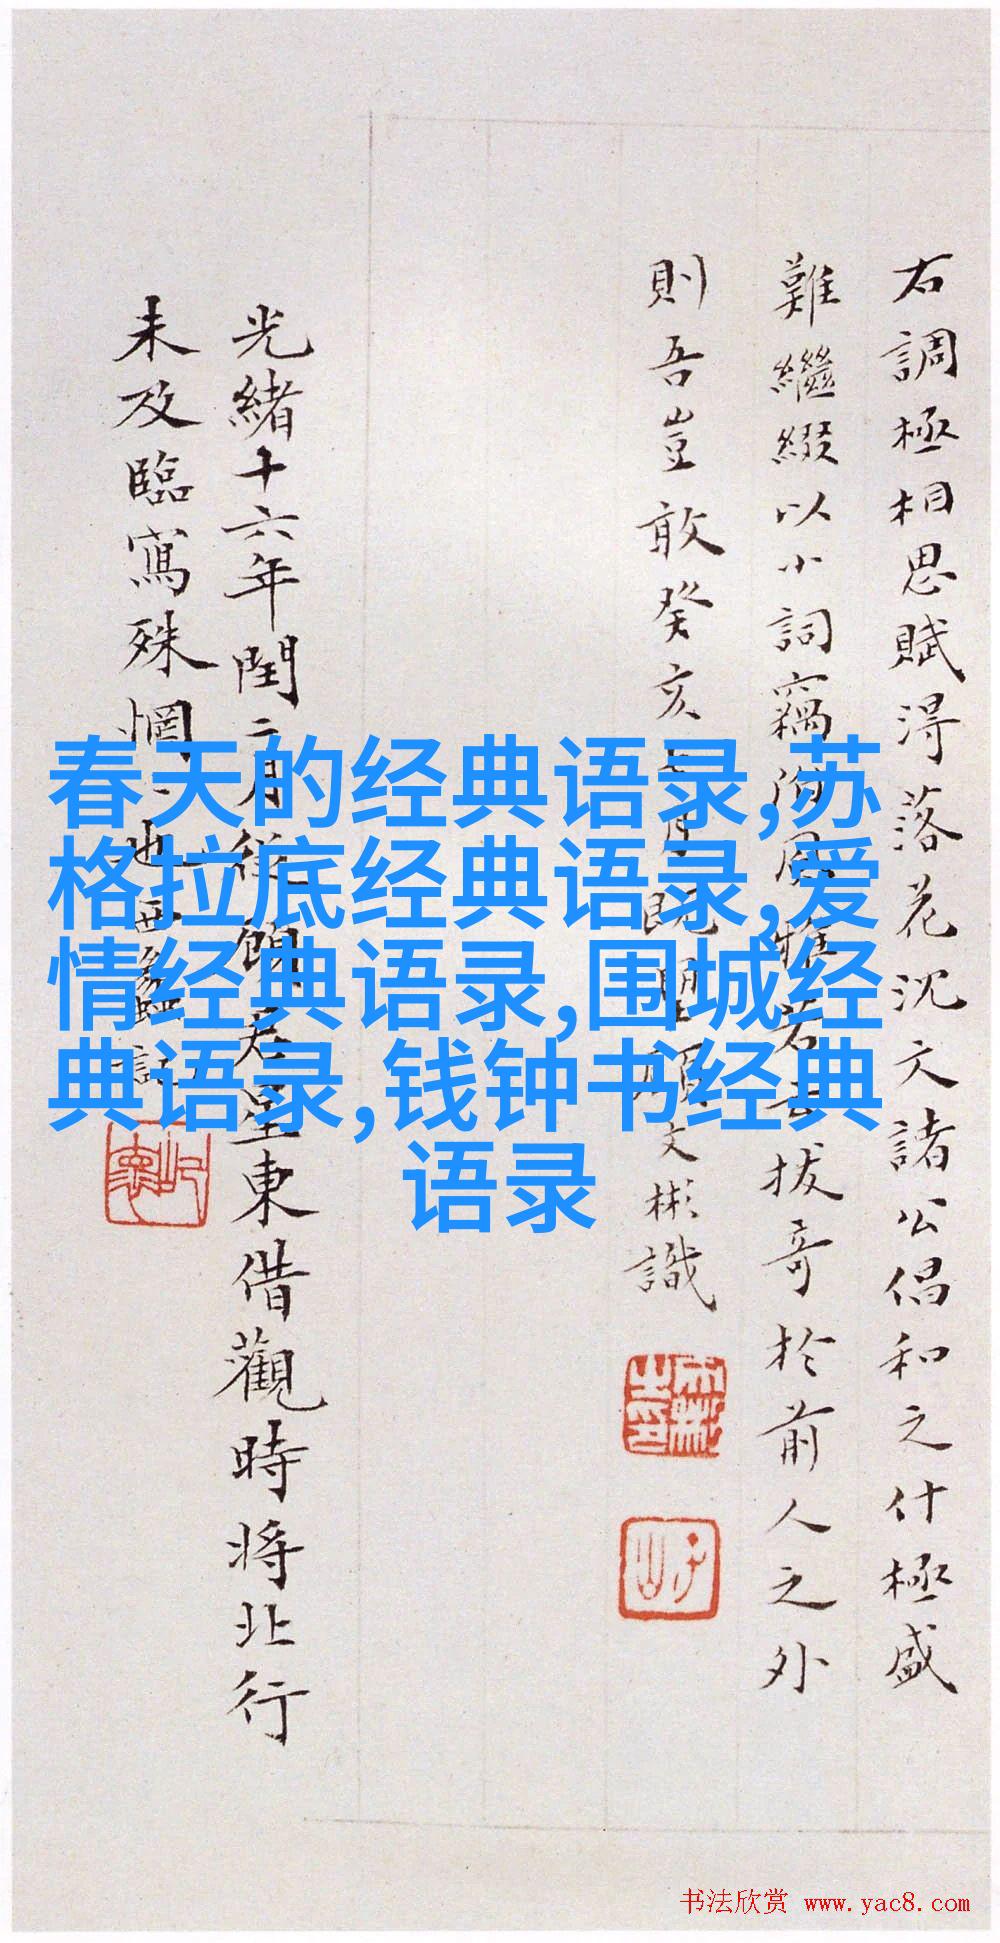 右調極相思賦得落花沈文諸公倡和之什極盛
難繼綴以小詞竊附風雅若云拔奇於前人之外
則吾豈敢癸亥 月既望顧文彬識
光緒十六年閏二月從 君星東借觀時將北行
未及臨寫殊惘惘也西蠡記
春天的经典语录,苏
格拉底经典语录,爱
情经典语录,围城经
典语录,钱钟书经典
语录
书法欣赏 www.yac8.com